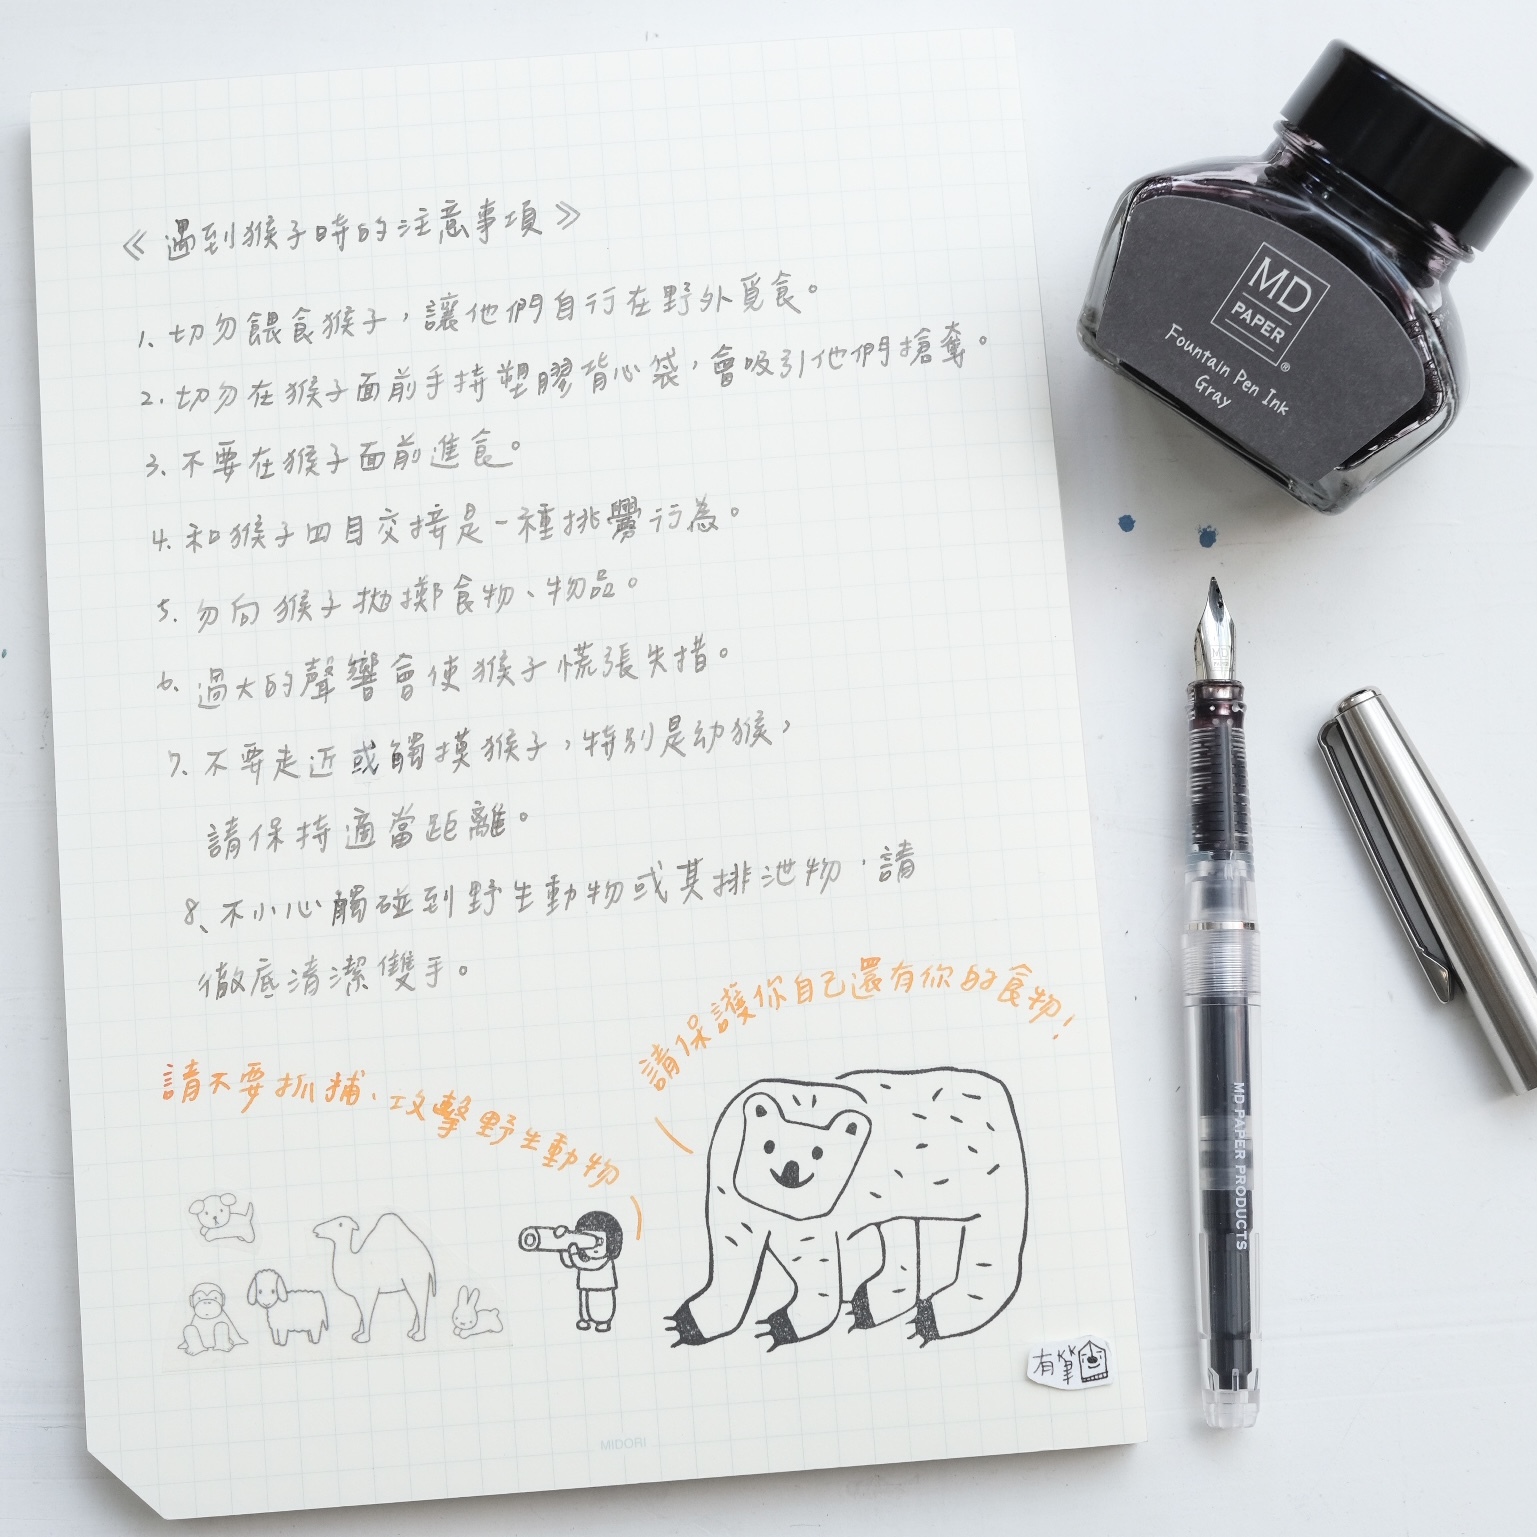 《遇到猴子時的注意事項》
1. 切勿餵食猴子，讓他們自行在野外覓食。
2. 切勿在猴子面前手持塑膠背心袋，會吸引他們搶奪。
3. 不要在猴子面前進食。
4. 和猴子四目交接是一種挑釁行為。
5. 勿向猴子拋擲食物、物品。
6. 過大的聲響會使猴子慌張失措。
7. 不要走近或觸摸猴子，特別是幼猴，
請保持適當距離。
8. 不小心觸碰到野生動物或其排泄物，請
徹底清潔雙手。
請保護你自己還有你的食物！
請不要抓捕、攻擊野生動物
有筆
MIDORI
MD
PAPER
®
Fountain Pen Ink
Gray
MD
MD PAPER PRODUCTS